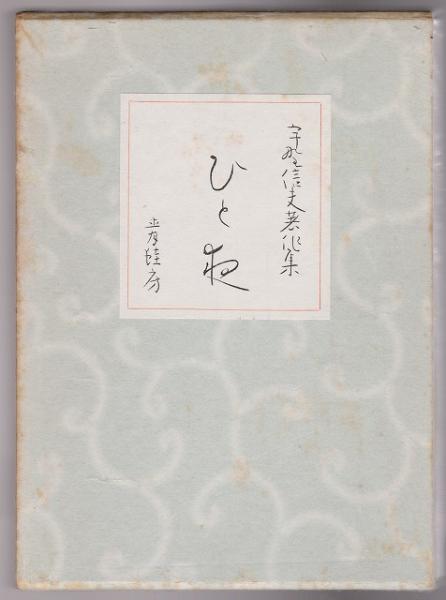 宇野信夫著作集
ひと夜
青蛙房